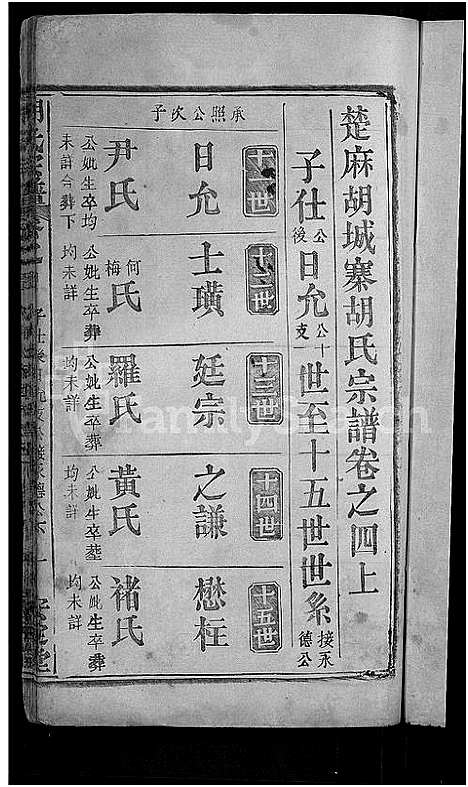 楚麻胡城寨胡氏宗譜卷之四上
子仕公後日允公支十一世至十五世世系接永德公
十一世
十二世
十三世
十四世
十五世
承照公次子
日允
士璜
廷宗
之謙
懋柱
尹氏
何梅氏
羅氏
黃氏
褚氏
公妣生卒均未詳合葬下
公妣生卒葬均未詳
公妣生卒葬均未詳
公妣生卒葬均未詳
公妣生卒葬均未詳
FamilySearch